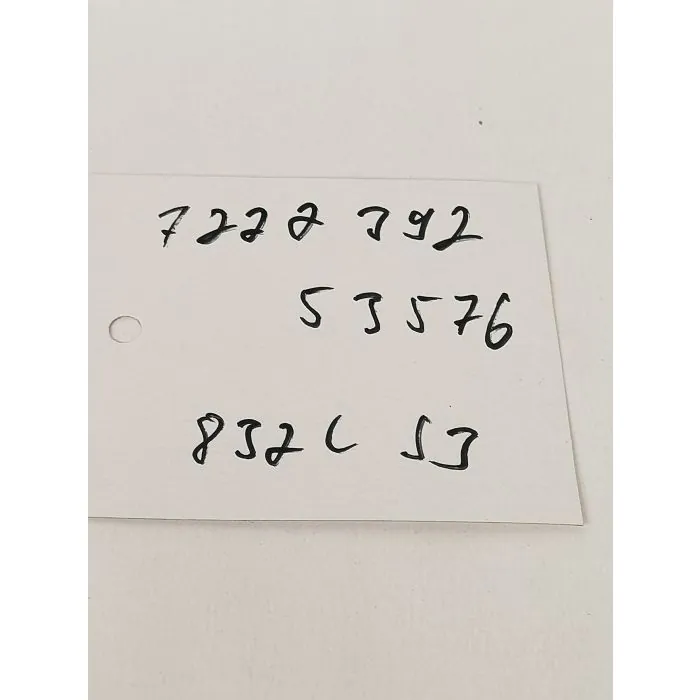 7222 392
53576
832C 53